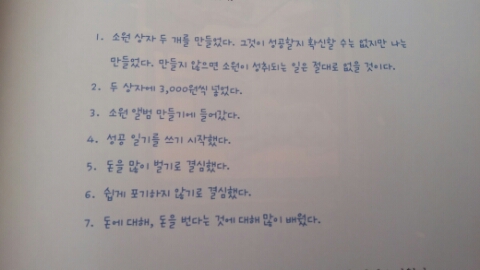 1. 소원 상자 두 개를 만들었다. 그것이 성공할지 확신할 수는 없지만 나는
만들었다. 만들지 않으면 소원이 성취되는 일은 절대로 없을 것이다.
2. 두 상자에 3,000원씩 넣었다.
3. 소원 앨범 만들기에 들어갔다.
4. 성공 일기를 쓰기 시작했다.
5. 돈을 많이 벌기로 결심했다.
6. 쉽게 포기하지 않기로 결심했다.
7. 돈에 대해, 돈을 번다는 것에 대해 많이 배웠다.